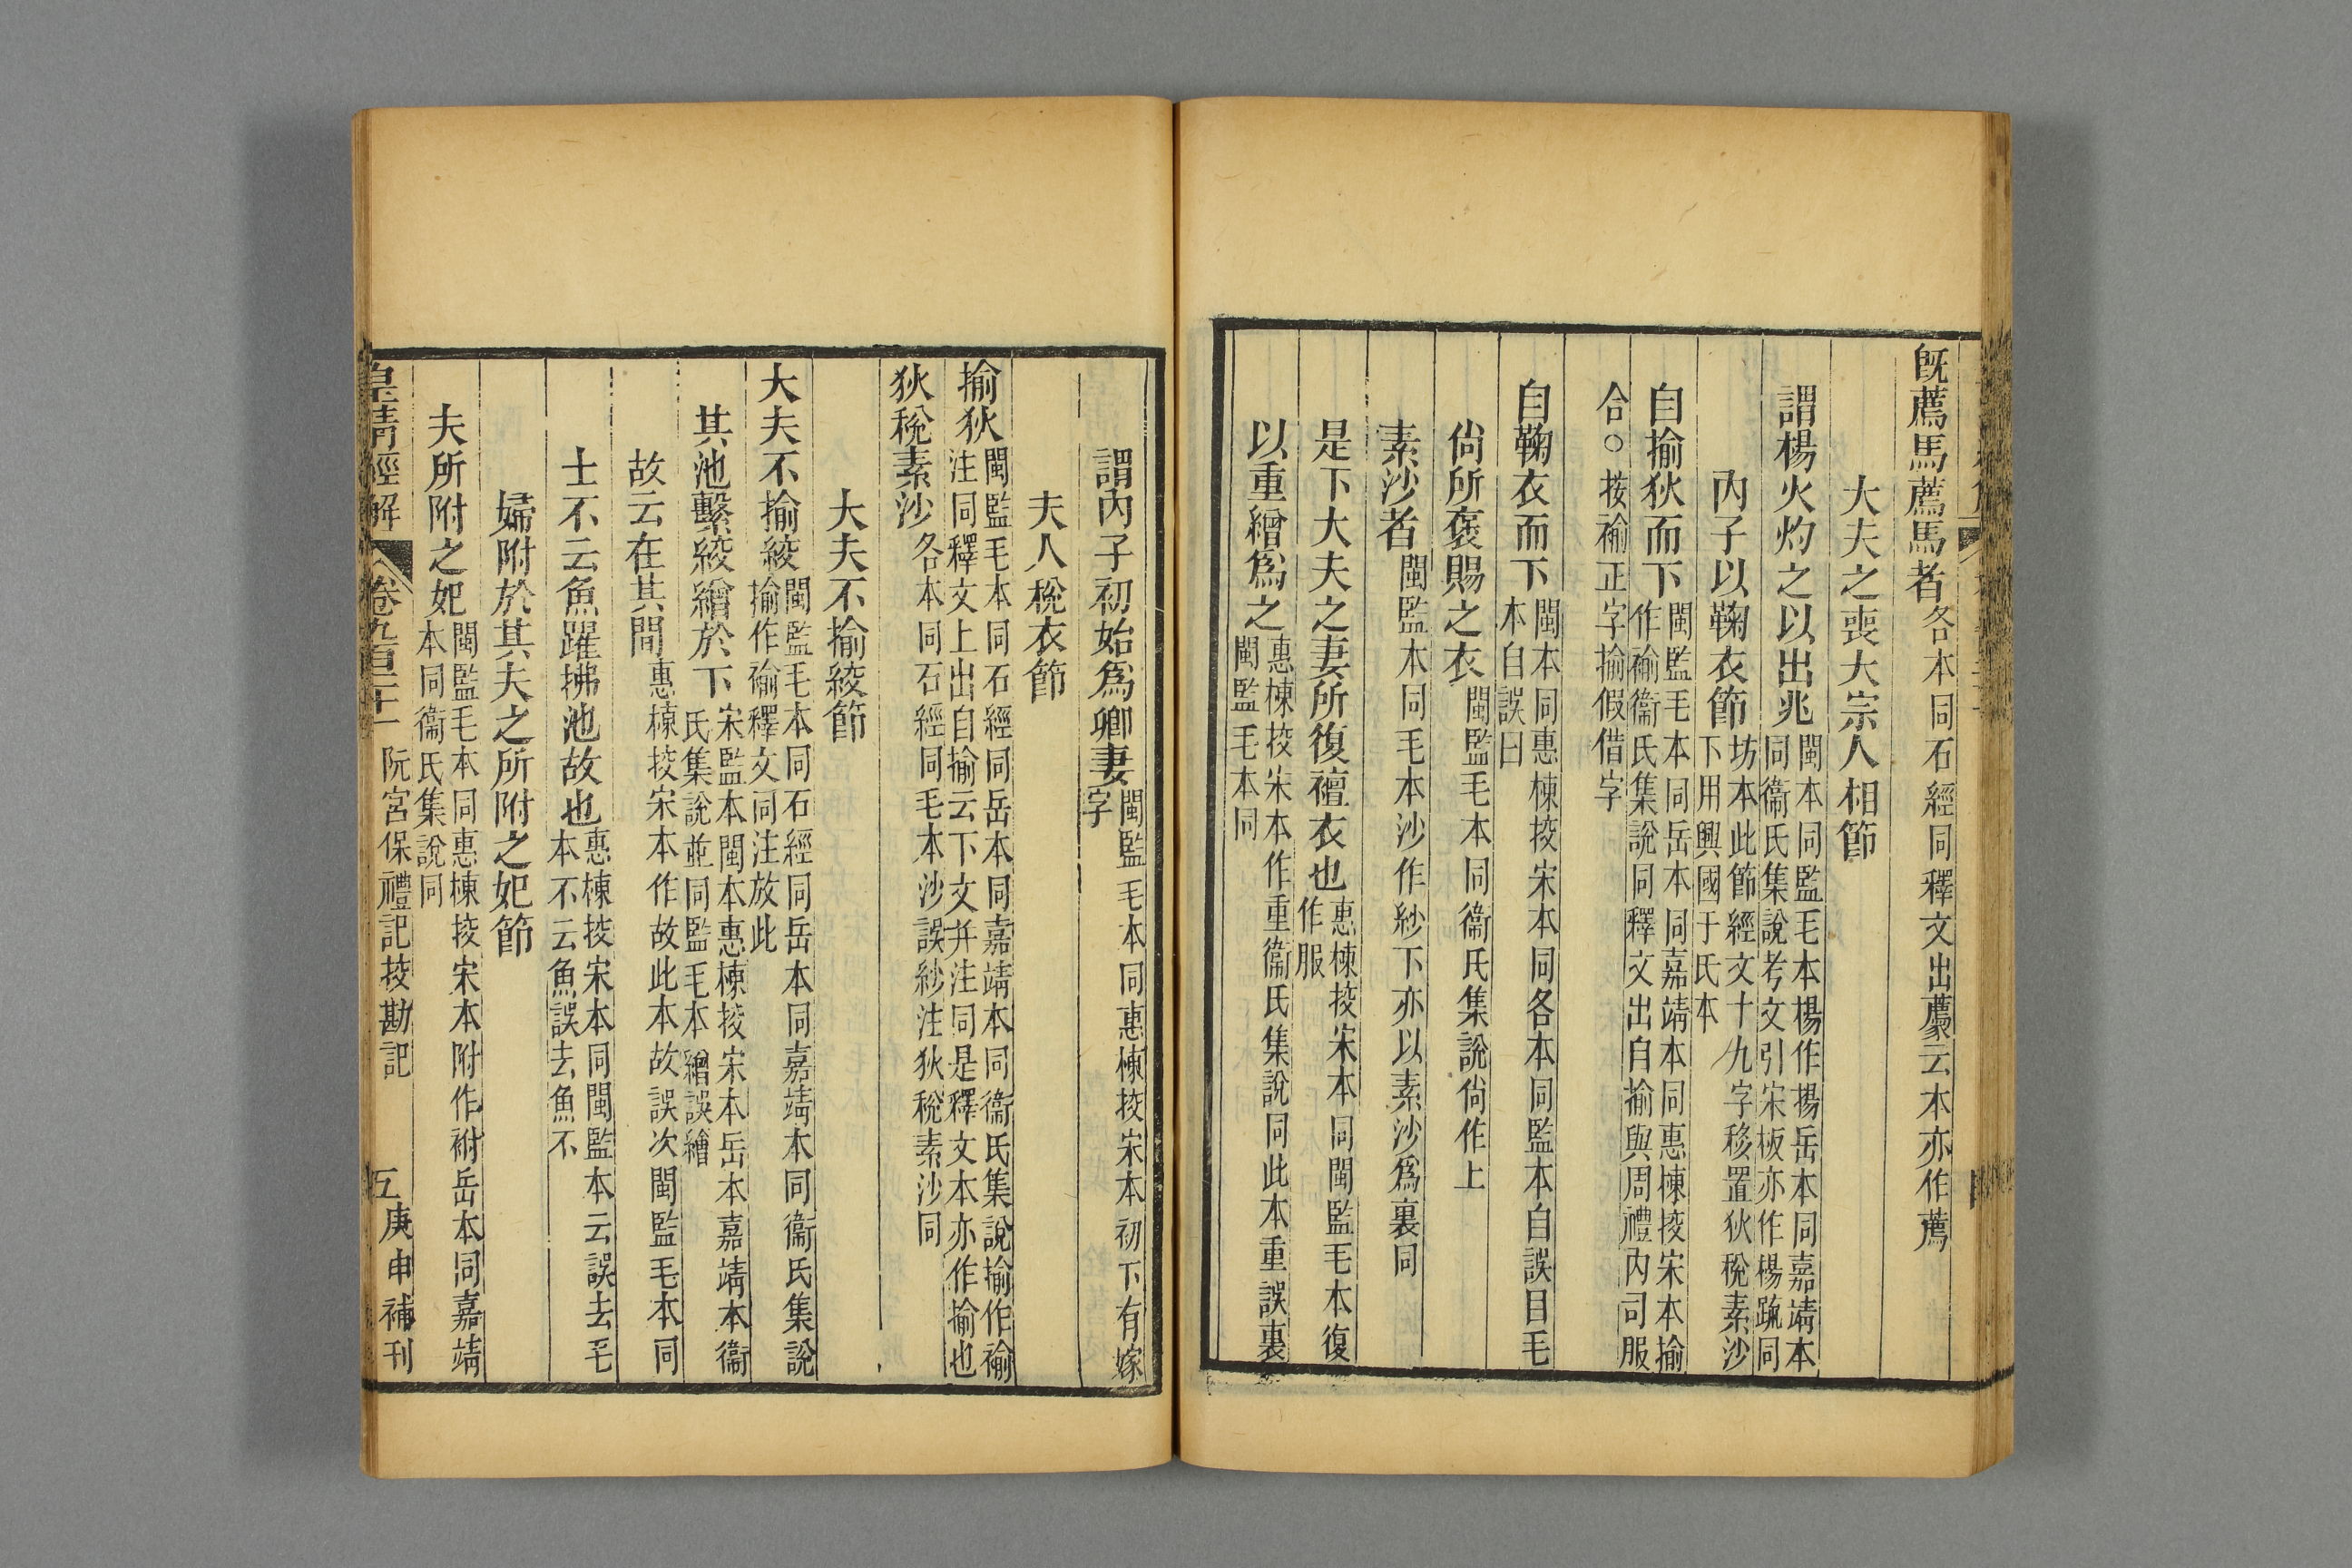 既薦馬薦馬者各本同石經同釋文出薦云本亦作薦
大夫之喪大宗人相節
謂楊火灼之以出兆閩本同監毛本楊作揚岳本同嘉靖本同衞氏集說考文引宋板亦作楊䟽同
內子以鞠衣節坊本此節經文十九字移置狄稅素沙下用興國于氏本
自揄狄而下閩監毛本同岳本同嘉靖本同惠棟挍宋本揄作褕衞氏集說同釋文出自揄與周禮內司服
合○按褕正字揄假借字
自鞠衣而下閩本同惠棟挍宋本同各本同監本自誤目毛本自誤曰
尙所襃賜之衣閩監毛本同衞氏集說尙作上
素沙者閩監本同毛本沙作紗下亦以素沙爲裏同
是下大夫之妻所復襢衣也惠棟挍宋本同閩監毛本復作服
以重繒爲之惠棟挍宋本作重衞氏集說同此本重誤裏閩監毛本同
謂內子初始爲卿妻閩監毛本同惠棟挍宋本初下有嫁字
夫人稅衣節
揄狄閩監毛本同石經同岳本同嘉靖本同衞氏集說揄作褕注同釋文上出自揄云下文幷注同是釋文本亦作揄也
狄稅素沙各本同石經同毛本沙誤紗注狄稅素沙同
大夫不揄絞節
大夫不揄絞閩監毛本同石經同岳本同嘉靖本同衞氏集說揄作褕釋文同注放此
其池繫絞繒於下宋監本閩本惠棟挍宋本岳本嘉靖本衞氏集說並同監毛本繒誤繪
故云在其間惠棟挍宋本作故此本故誤次閩監毛本同
士不云魚躍拂池故也惠棟挍宋本同閩監本云誤去毛本不云魚誤去魚不
婦附於其夫之所附之妃節
夫所附之妃閩監毛本同惠棟挍宋本附作祔岳本同嘉靖本同衞氏集說同
皇清經解 卷九百二十一 阮宮保禮記挍勘記 五 庚申補刊